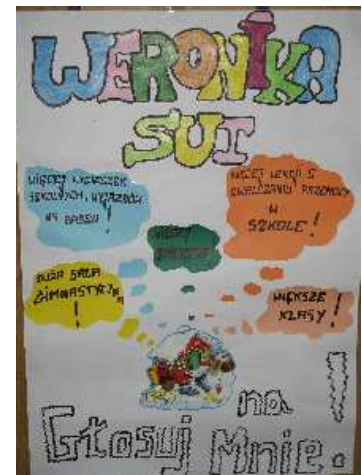 WERONIKA
SUT
WIĘCEJ WYCIECZEK
SZKOLNYCH, WYJAZDÓW
NA BASEN!
WIĘCEJ LEKCJI O
ZWALCZANIU PRZEMOCY
W
SZKOLE!
DUŻA SALA
GIMNASTYCZNA
!
WIĘKSZE
KLASY!
Głosuj na
Mnie!